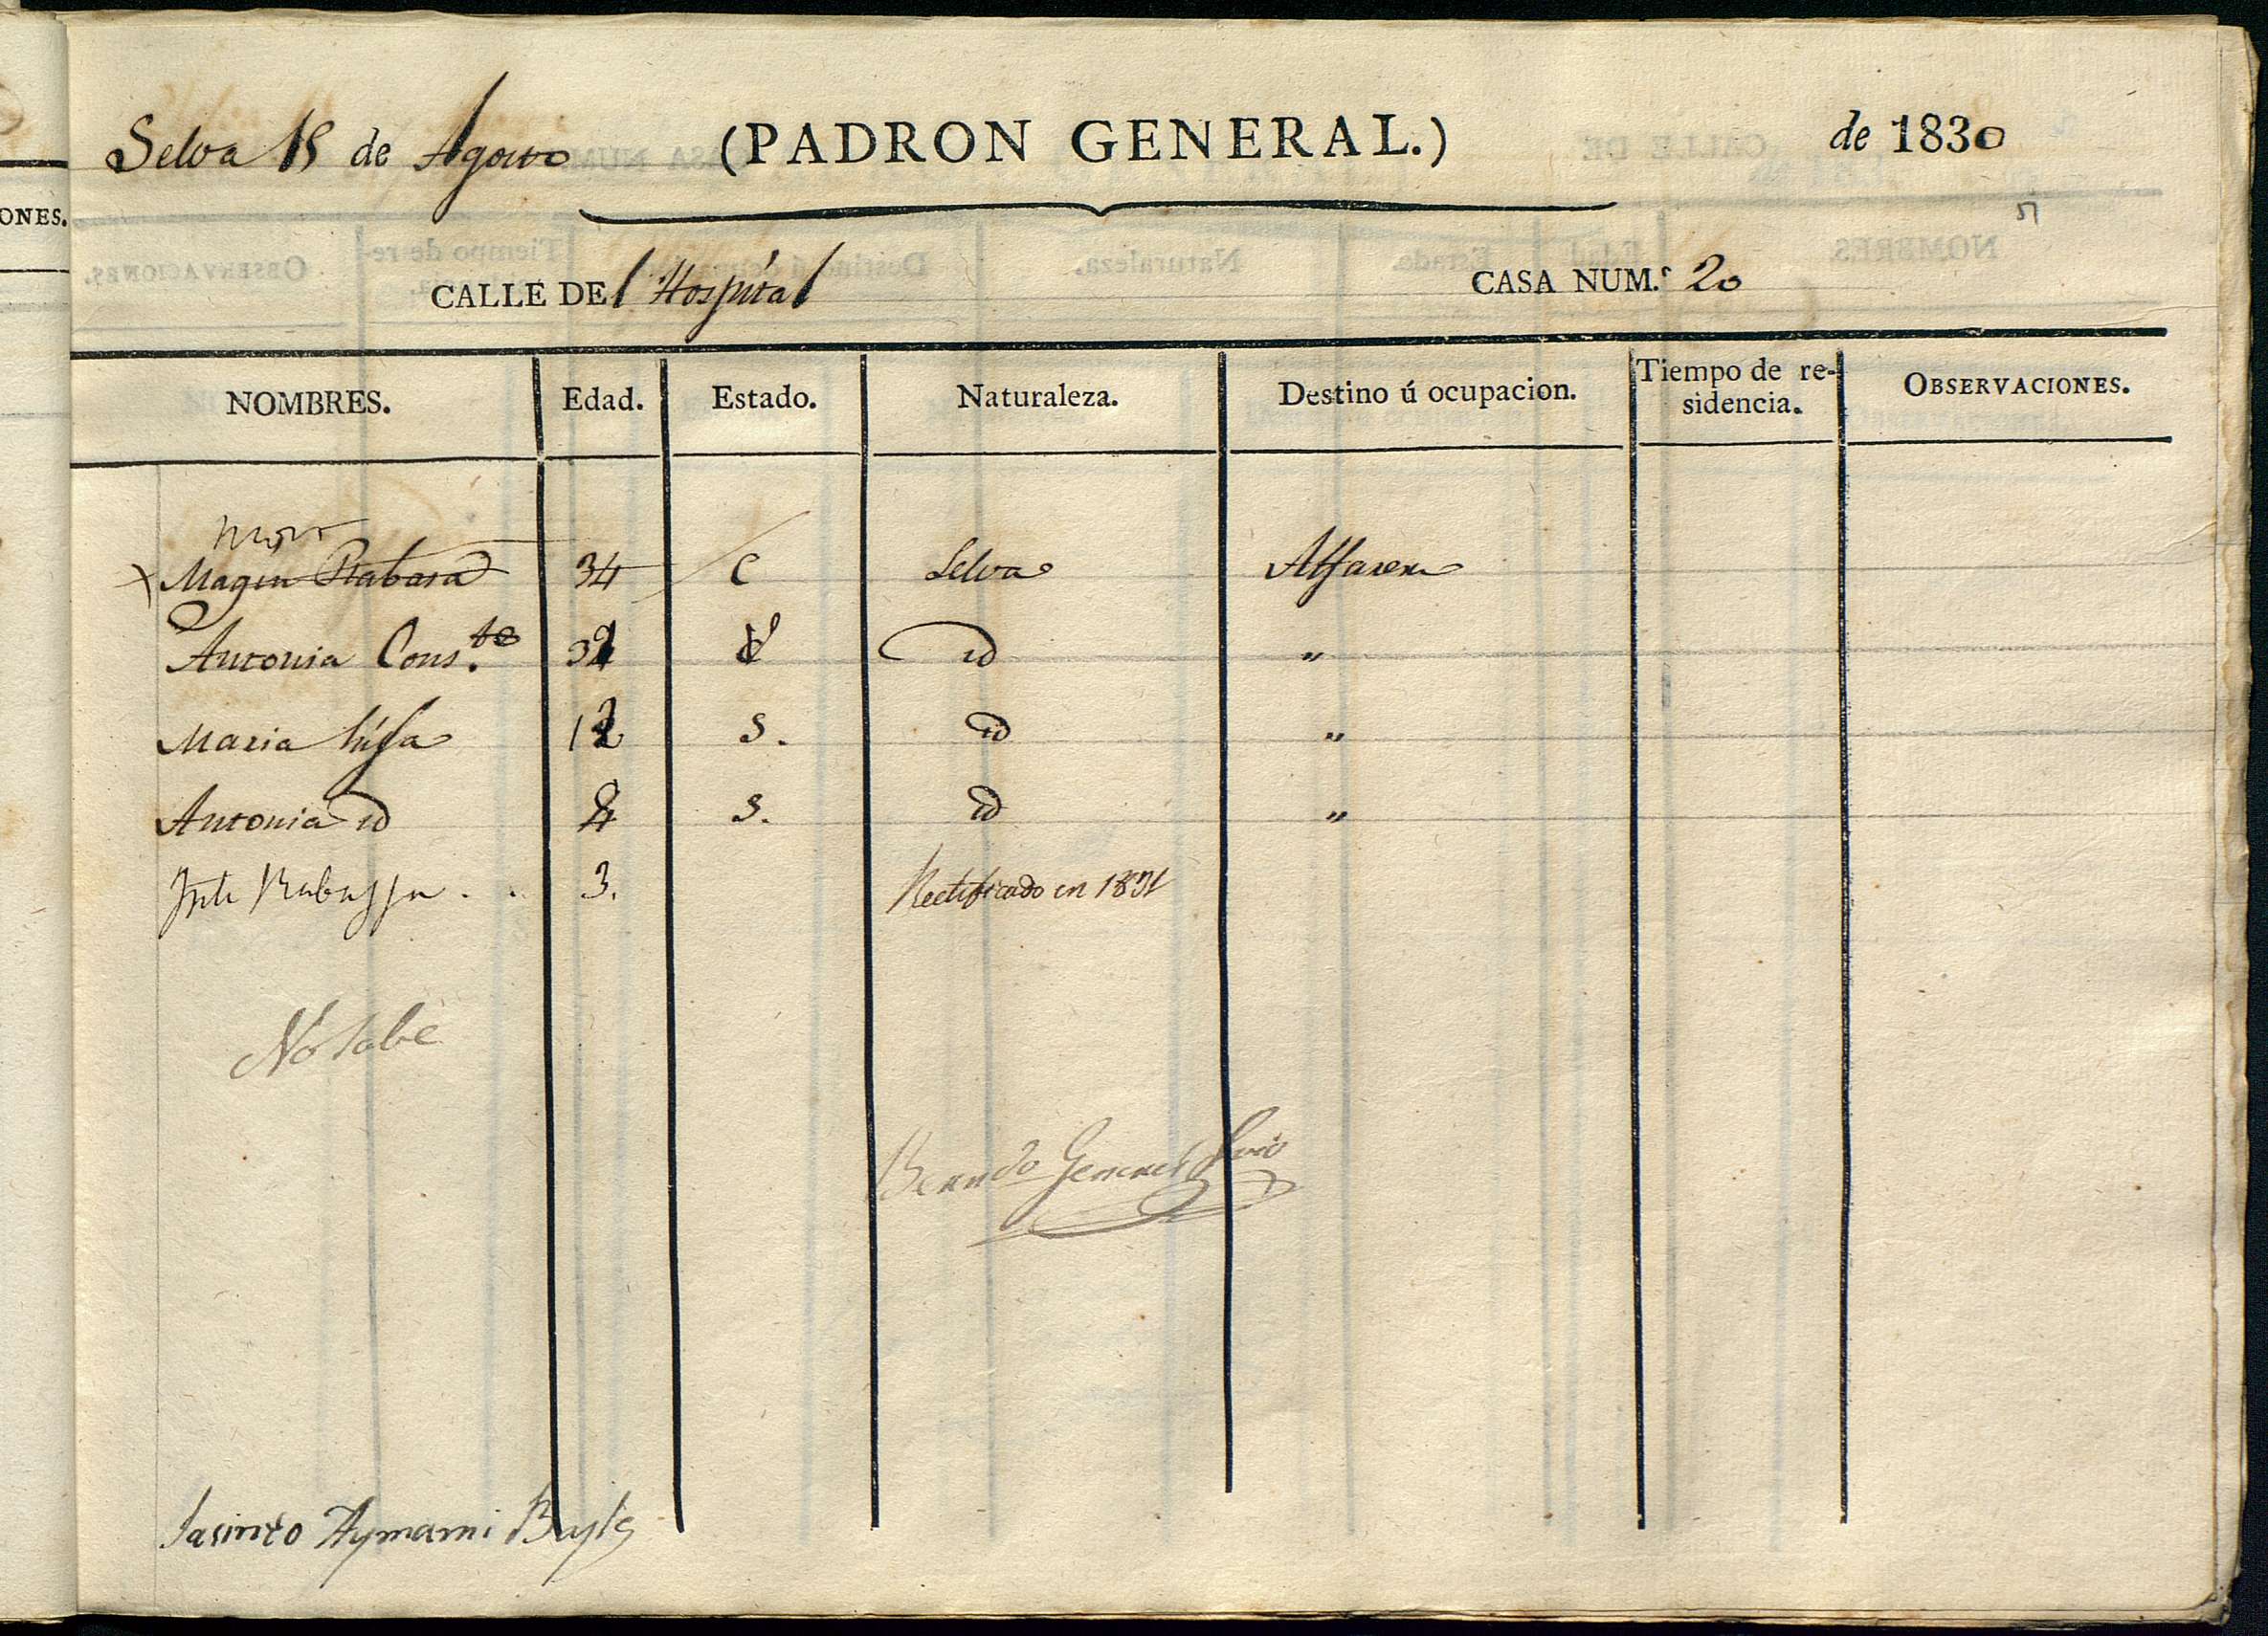 Selva 15 de Agosto (PADRON GENERAL.) de 1830
51
CALLE DEl Hospital CASA NUM.º 20
NOMBRES. Edad. Estado. Naturaleza. Destino ú ocupacion. Tiempo de residencia. OBSERVACIONES.
Magin Rabasa 34 C Selva Alfarero
Antonia Cons.te id "
Maria hija 12 S. id "
Antonia id S. id "
3. Rectificado en 1831
No sabe
Jacinto Aymami Bayle
ONES.